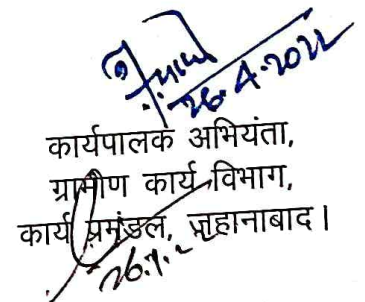 26.4.2022
कार्यपालक अभियंता,
ग्रामीण कार्य विभाग,
कार्य प्रमंडल, जहानाबाद।